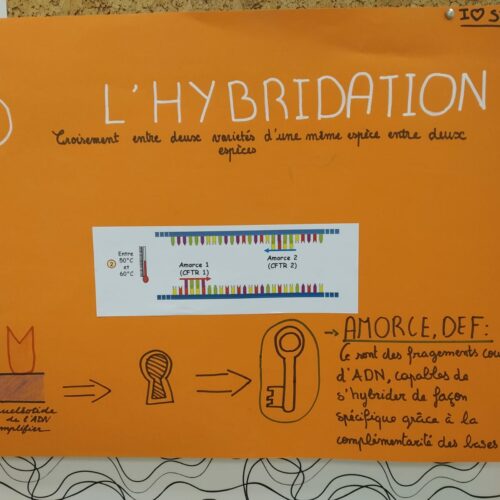 I♡S
L'HYBRIDATION
Croisement entre deux variétés d'une même espèce entre deux
espèces
②
Entre
50°C
et
60°C
Amorce 1
(CFTR 1)
Amorce 2
(CFTR 2)
→ AMORCE, DEF:
Ce sont des fragements cou
d'ADN, capables de
s'hybrider de façon
spécifique grâce à la
complémentarité des bases
nucléotide
de l'ADN
amplifier